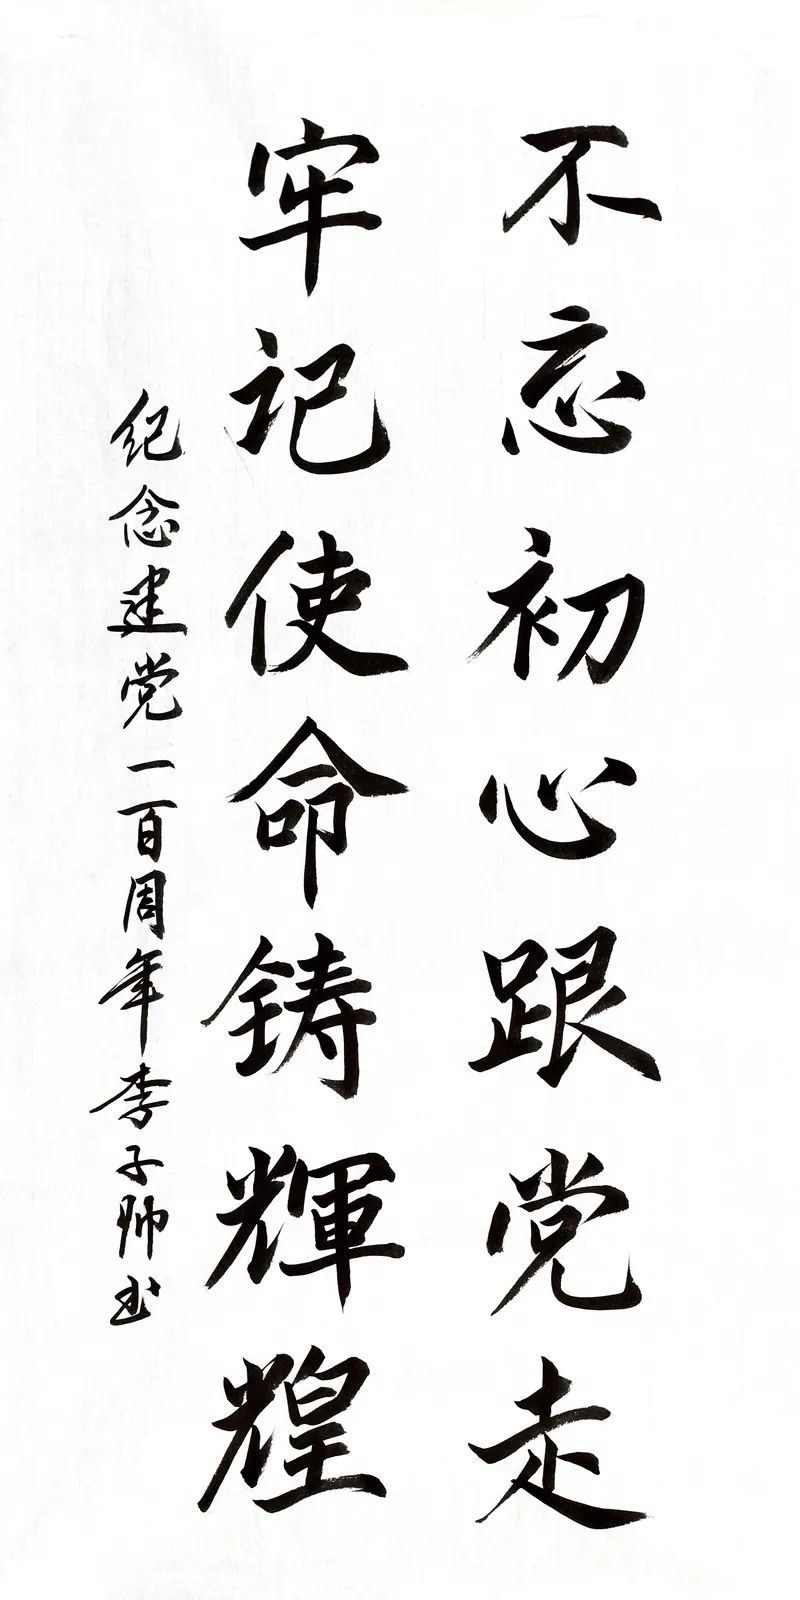 不忘初心跟党走
牢记使命铸輝煌
纪念建党一百周年李子帅书